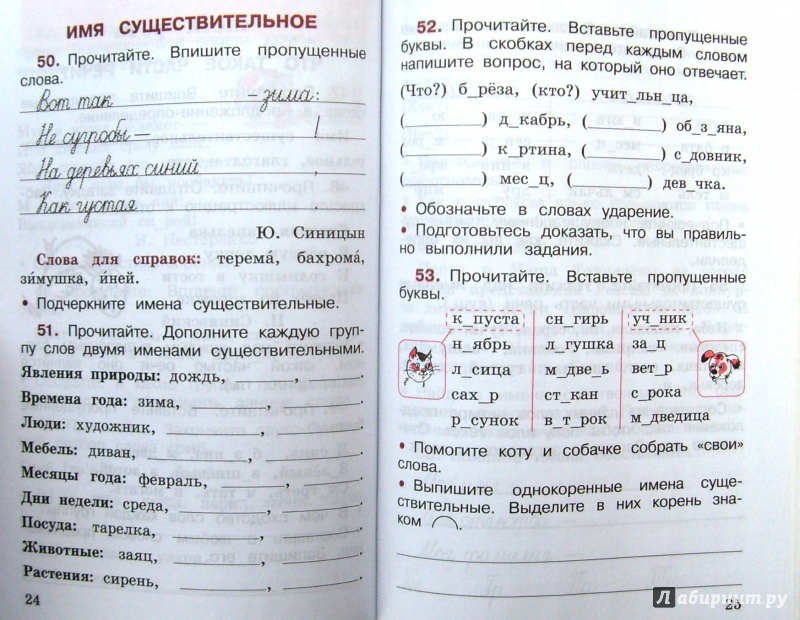 ИМЯ СУЩЕСТВИТЕЛЬНОЕ
50. Прочитайте. Впишите пропущенные
слова.
Вот так ‑ зима:
Не сугробы – !
На деревьях синий
Как густая
Ю. Синицын
Слова для справок: терема́, бахрома́,
зи́мушка, и́ней.
• Подчеркните имена существительные.
51. Прочитайте. Дополните каждую груп-
пу слов двумя именами существительными.
Явления природы: дождь, ________, ________.
Времена года: зима, ________, ________.
Люди: художник, ________, ________.
Мебель: диван, ________, ________.
Месяцы года: февраль, ________, ________.
Дни недели: среда, ________, ________.
Посуда: тарелка, ________, ________.
Животные: заяц, ________, ________.
Растения: сирень, ________, ________.
24
52. Прочитайте. Вставьте пропущенные
буквы. В скобках перед каждым словом
напишите вопрос, на который оно отвечает.
(Что?) б_рёза, (кто?) учит_льн_ца,
(______) д_кабрь, (______) об_з_яна,
(______) к_ртина, (______) с_довник,
(______) мес_ц, (______) дев_чка.
• Обозначьте в словах ударение.
• Подготовьтесь доказать, что вы правиль-
но выполнили задания.
53. Прочитайте. Вставьте пропущенные
буквы.
к_пуста сн_гирь уч_ник
н_ябрь л_гушка за_ц
л_сица м_две_ь вет_р
сах_р ст_кан с_рока
р_сунок в_т_рок м_дведица
• Помогите коту и собачке собрать «свои»
слова.
• Выпишите однокоренные имена суще-
ствительные. Выделите в них корень зна-
ком ⌒.
25
Лабиринт.ру